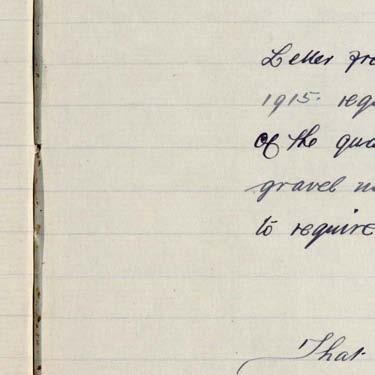 Letter fro
1915. reg
of the qua
gravel
to require
That